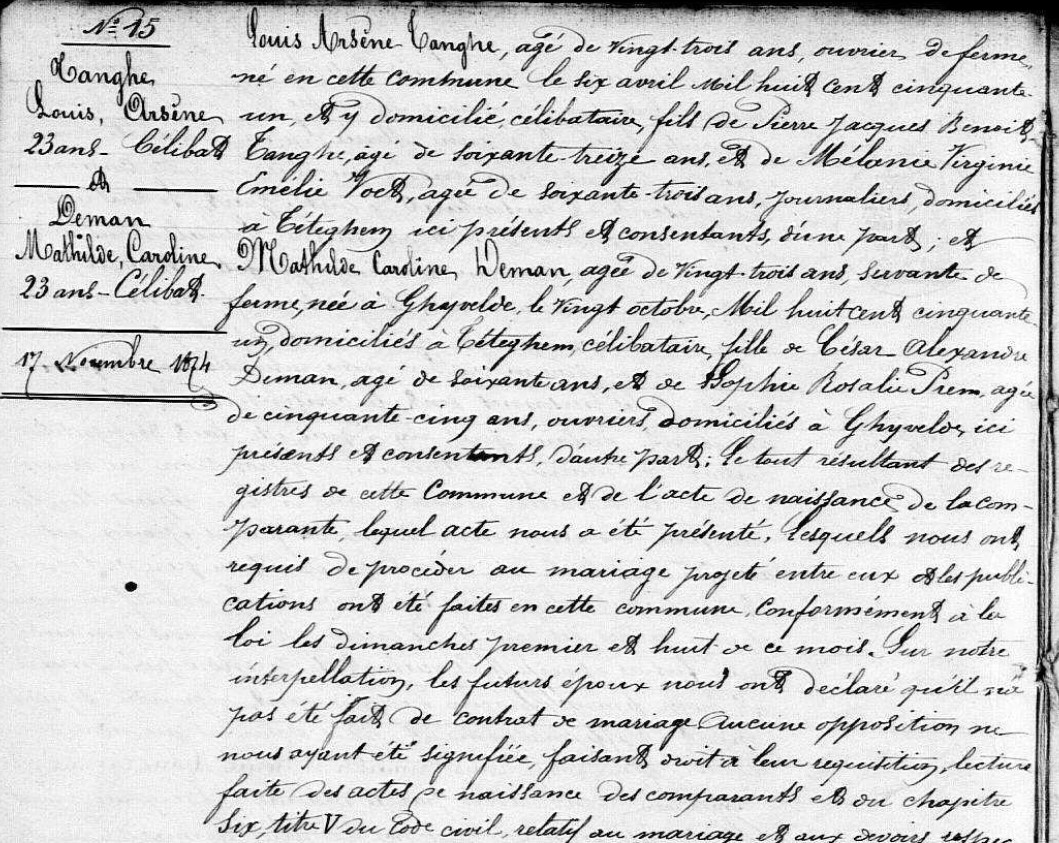 N° 15
Tanghe
Louis, Arsène
23 ans - Célibat
et
Deman
Mathilde, Caroline
23 ans - Célibat.
17 Novembre 1874
Louis Arsène Tanghe, agé de vingt-trois ans, ouvrier de ferme,
né en cette commune le six avril mil huit cent cinquante-
un, et y domicilié, célibataire, fils de Pierre Jacques Benoit
Tanghe, agé de soixante-treize ans, et de Mélanie Virginie
Emélie Voet, agée de soixante-trois ans, journaliers, domiciliés
à Téteghem ici présents et consentants, d'une part ; et
Mathilde Caroline Deman, agée de vingt-trois ans, servante de
ferme, née à Ghyvelde, le vingt octobre, Mil huit cent cinquante
un, domiciliés à Téteghem, célibataire, fille de César Alexandre
Deman, agé de soixante ans, et de Sophie Rosalie Prem, agée
de cinquante-cinq ans, ouvriers, domiciliés à Ghyvelde, ici
présents et consentants, d'autre part ; Le tout résultant des re-
gistres de cette Commune et de l'acte de naissance de la com-
parante, lequel acte nous a été présenté, lesquels nous ont
requis de procéder au mariage projeté entre eux et les publi-
cations ont été faites en cette commune, Conformément à la
loi les dimanches premier et huit de ce mois. Sur notre
interpellation, les futurs epoux nous ont déclaré qu'il n'a
pas été fait de contrat de mariage Aucune opposition ne
nous ayant été signifiée, faisant droit à leur requisition, lecture
faite des actes de naissance des comparants et du chapitre
six, titre V du Code civil, relatif au mariage et aux devoirs respec